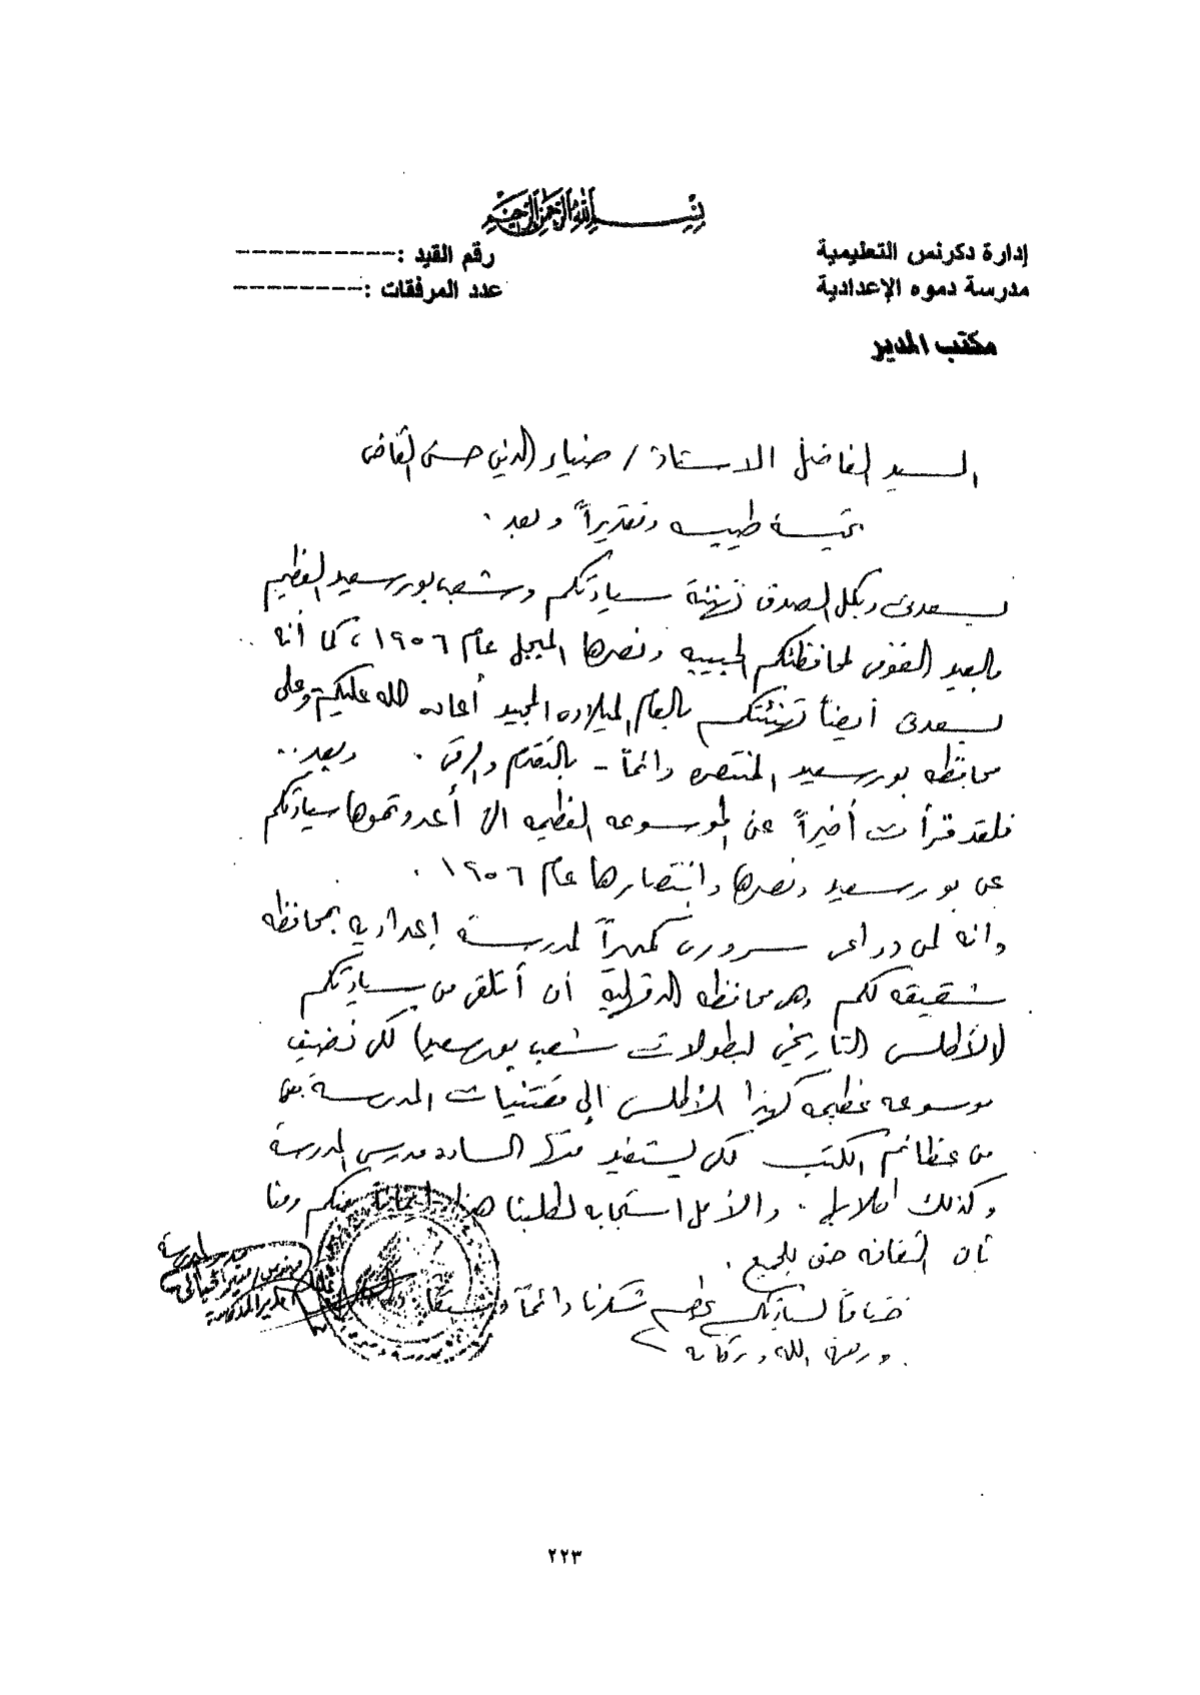 بسم الله الرحمن الرحيم
إدارة دكرنس التعليمية
رقم القيد :-----------
مدرسة دموه الإعدادية
عدد المرفقات :---------
مكتب المدير
السيد الفاضل الاستاذ / ضياء الدين حسن القاضى
تحية طيبه وتقديراً وبعد .
يسعدنى وبكل الصدق تهنئة سيادتكم وشعب بورسعيد العظيم
بالعيد القومى لمحافظتكم الحبيبه ونصرها المبجل عام ١٩٥٦ ، كما أنه ..
يسعدنى أيضاً تهنئتكم بالعام الميلادى المجيد أعاده الله عليكم وعلى
محافظه بورسعيد المنتصره دائماً - بالتقدم والرقى . وبعد ..
فلقد قرأت أخيراً عن الموسوعه العظيمه التى أعددتموها سيادتكم
عن بورسعيد ونصرها وانتصارها عام ١٩٥٦ .
وانه لمن دواعى سرورى كمدير لمدرسة إعداديه بمحافظه
شقيقه لكم وهى محافظه الدقهلية أن أتلقى من سيادتكم
(الأطلس التاريخى لبطولات شعب بورسعيد) لكى نضيف
موسوعه عظيمه كهذا الأطلس إلى مقتنيات المدرسة
من عظائم الكتب لكى يستفيد منها الساده مدرسى المدرسة
وكذلك الطلاب . والأمل استجابه لطلبنا هذا منكم ومنا
بأن الثقافه حق للجميع .
ختاماً لسيادتكم عظيم شكرنا دائماً
ورحمة الله وبركاته
مدير المدرسة
٢٢٣